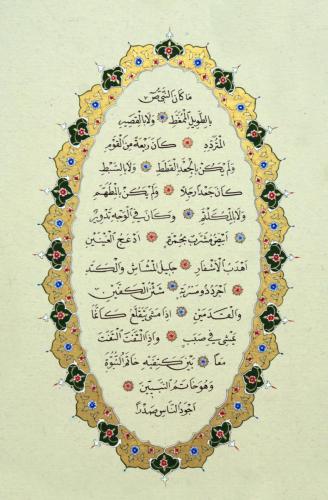 ما كان الشخص
بالطويل الممغط ولا بالقصير
المتردد كان ربعة من القوم
ولم يكن بالجعد القطط ولا بالسبط
كان جعدا رجلا ولم يكن بالمطهم
ولا بالمكلثم وكان في الوجه تدوير
ابيض مشرب بحمرة ادعج العينين
اهدب الاشفار جليل المشاش والكتد
اجرد ذو مسربة شثن الكفين
والقدمين اذا مشى يتقلع كأنما
يمشي في صبب واذا التفت التفت
معا بين كتفيه خاتم النبوة
وهو خاتم النبيين
اجود الناس صدرا